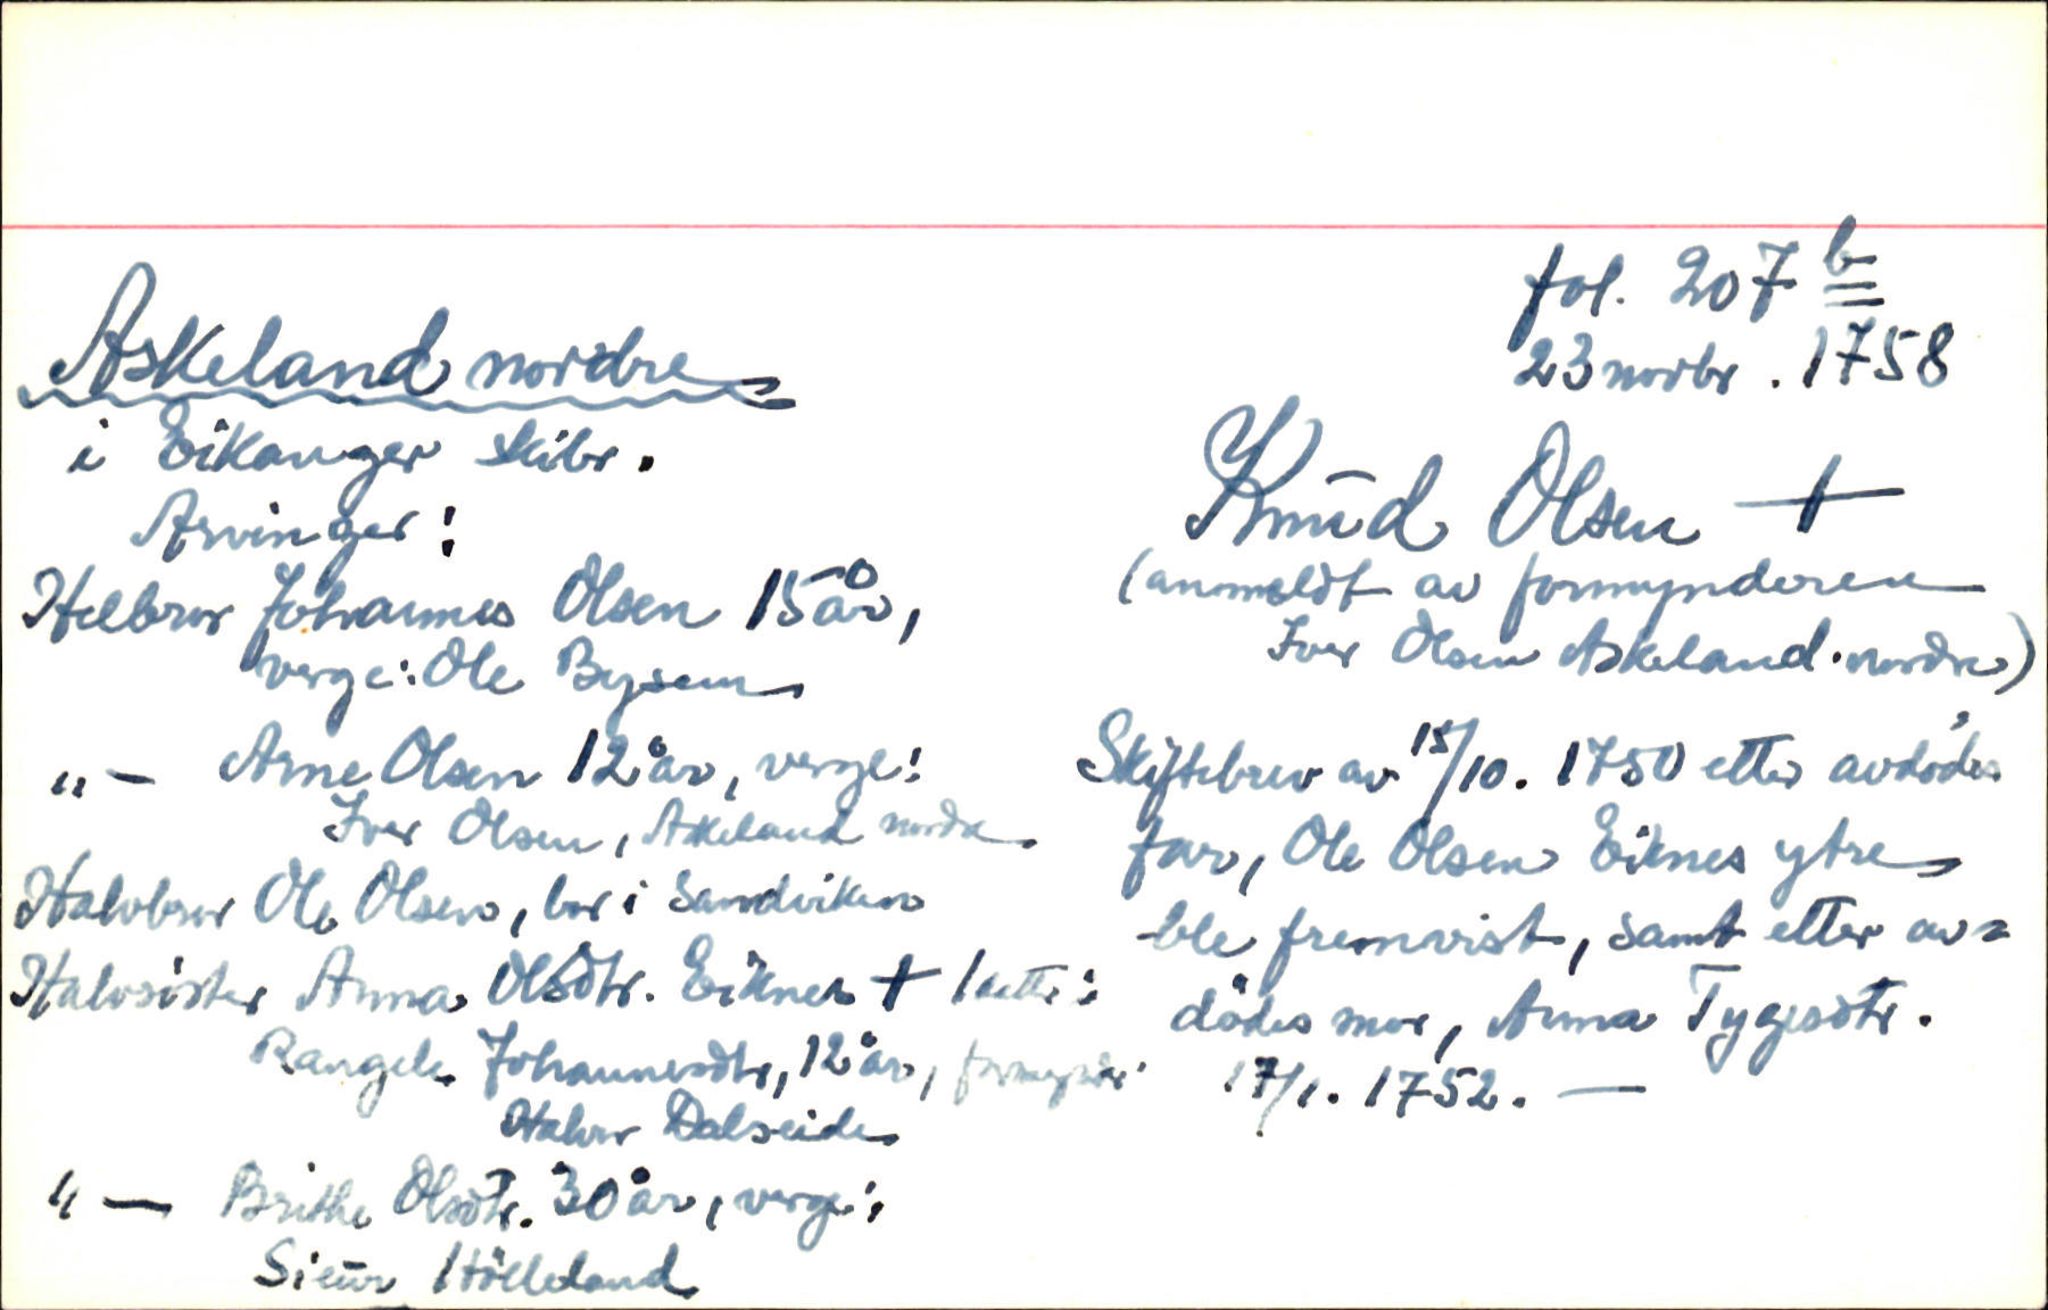 fol. 207 b
23 novbr. 1758
Askeland nordre
i Eikanger skibr.
Arvinger:
Helbror Johannes Olsen 15 år,
verge: Ole Bysem
" - Arne Olsen 12 år, verge:
Iver Olsen, Askeland nordre
Halvbror Ole Olsen, bor i Sandviken
Halvsöster Anna Olsdtr. Eiknes + 1 dtr:
Rangele Johannesdtr, 12 år, formynder
Halvor Dalseide
" - Brithe Olsdtr. 30 år, verge:
Siĕur Hölleland
Knŭd Olsen +
(anmeldt av formynderen
Iver Olsen Askeland nordre)
Skiftebrev av 15/10. 1750 etter avdödes
far, Ole Olsen Eiknes ytre
ble fremvist, samt etter av=
dödes mor, Anna Tygesdtr.
17/1. 1752. -